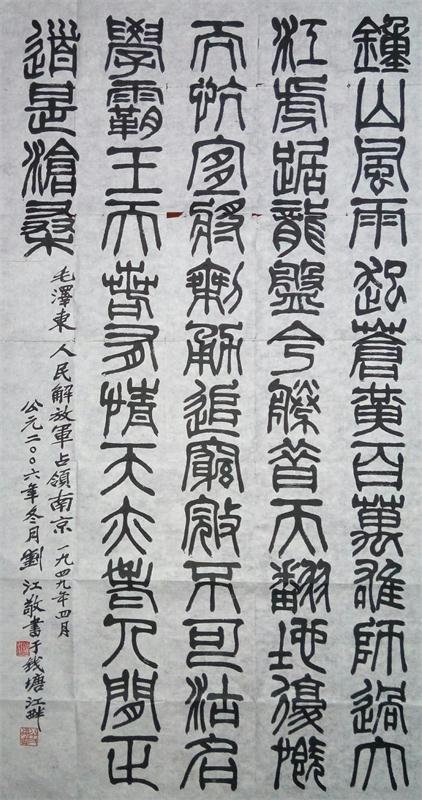 鐘山風雨起蒼黃百萬雄師過大
江虎踞龍盤今勝昔天翻地覆慨
而忼宜將剩勇追窮寇不可沽名
學霸王天若有情天亦老人間正
道是滄桑
毛澤東 人民解放軍占領南京 一九四九年四月
公元二〇〇六年冬月劉江敬書于錢塘江畔